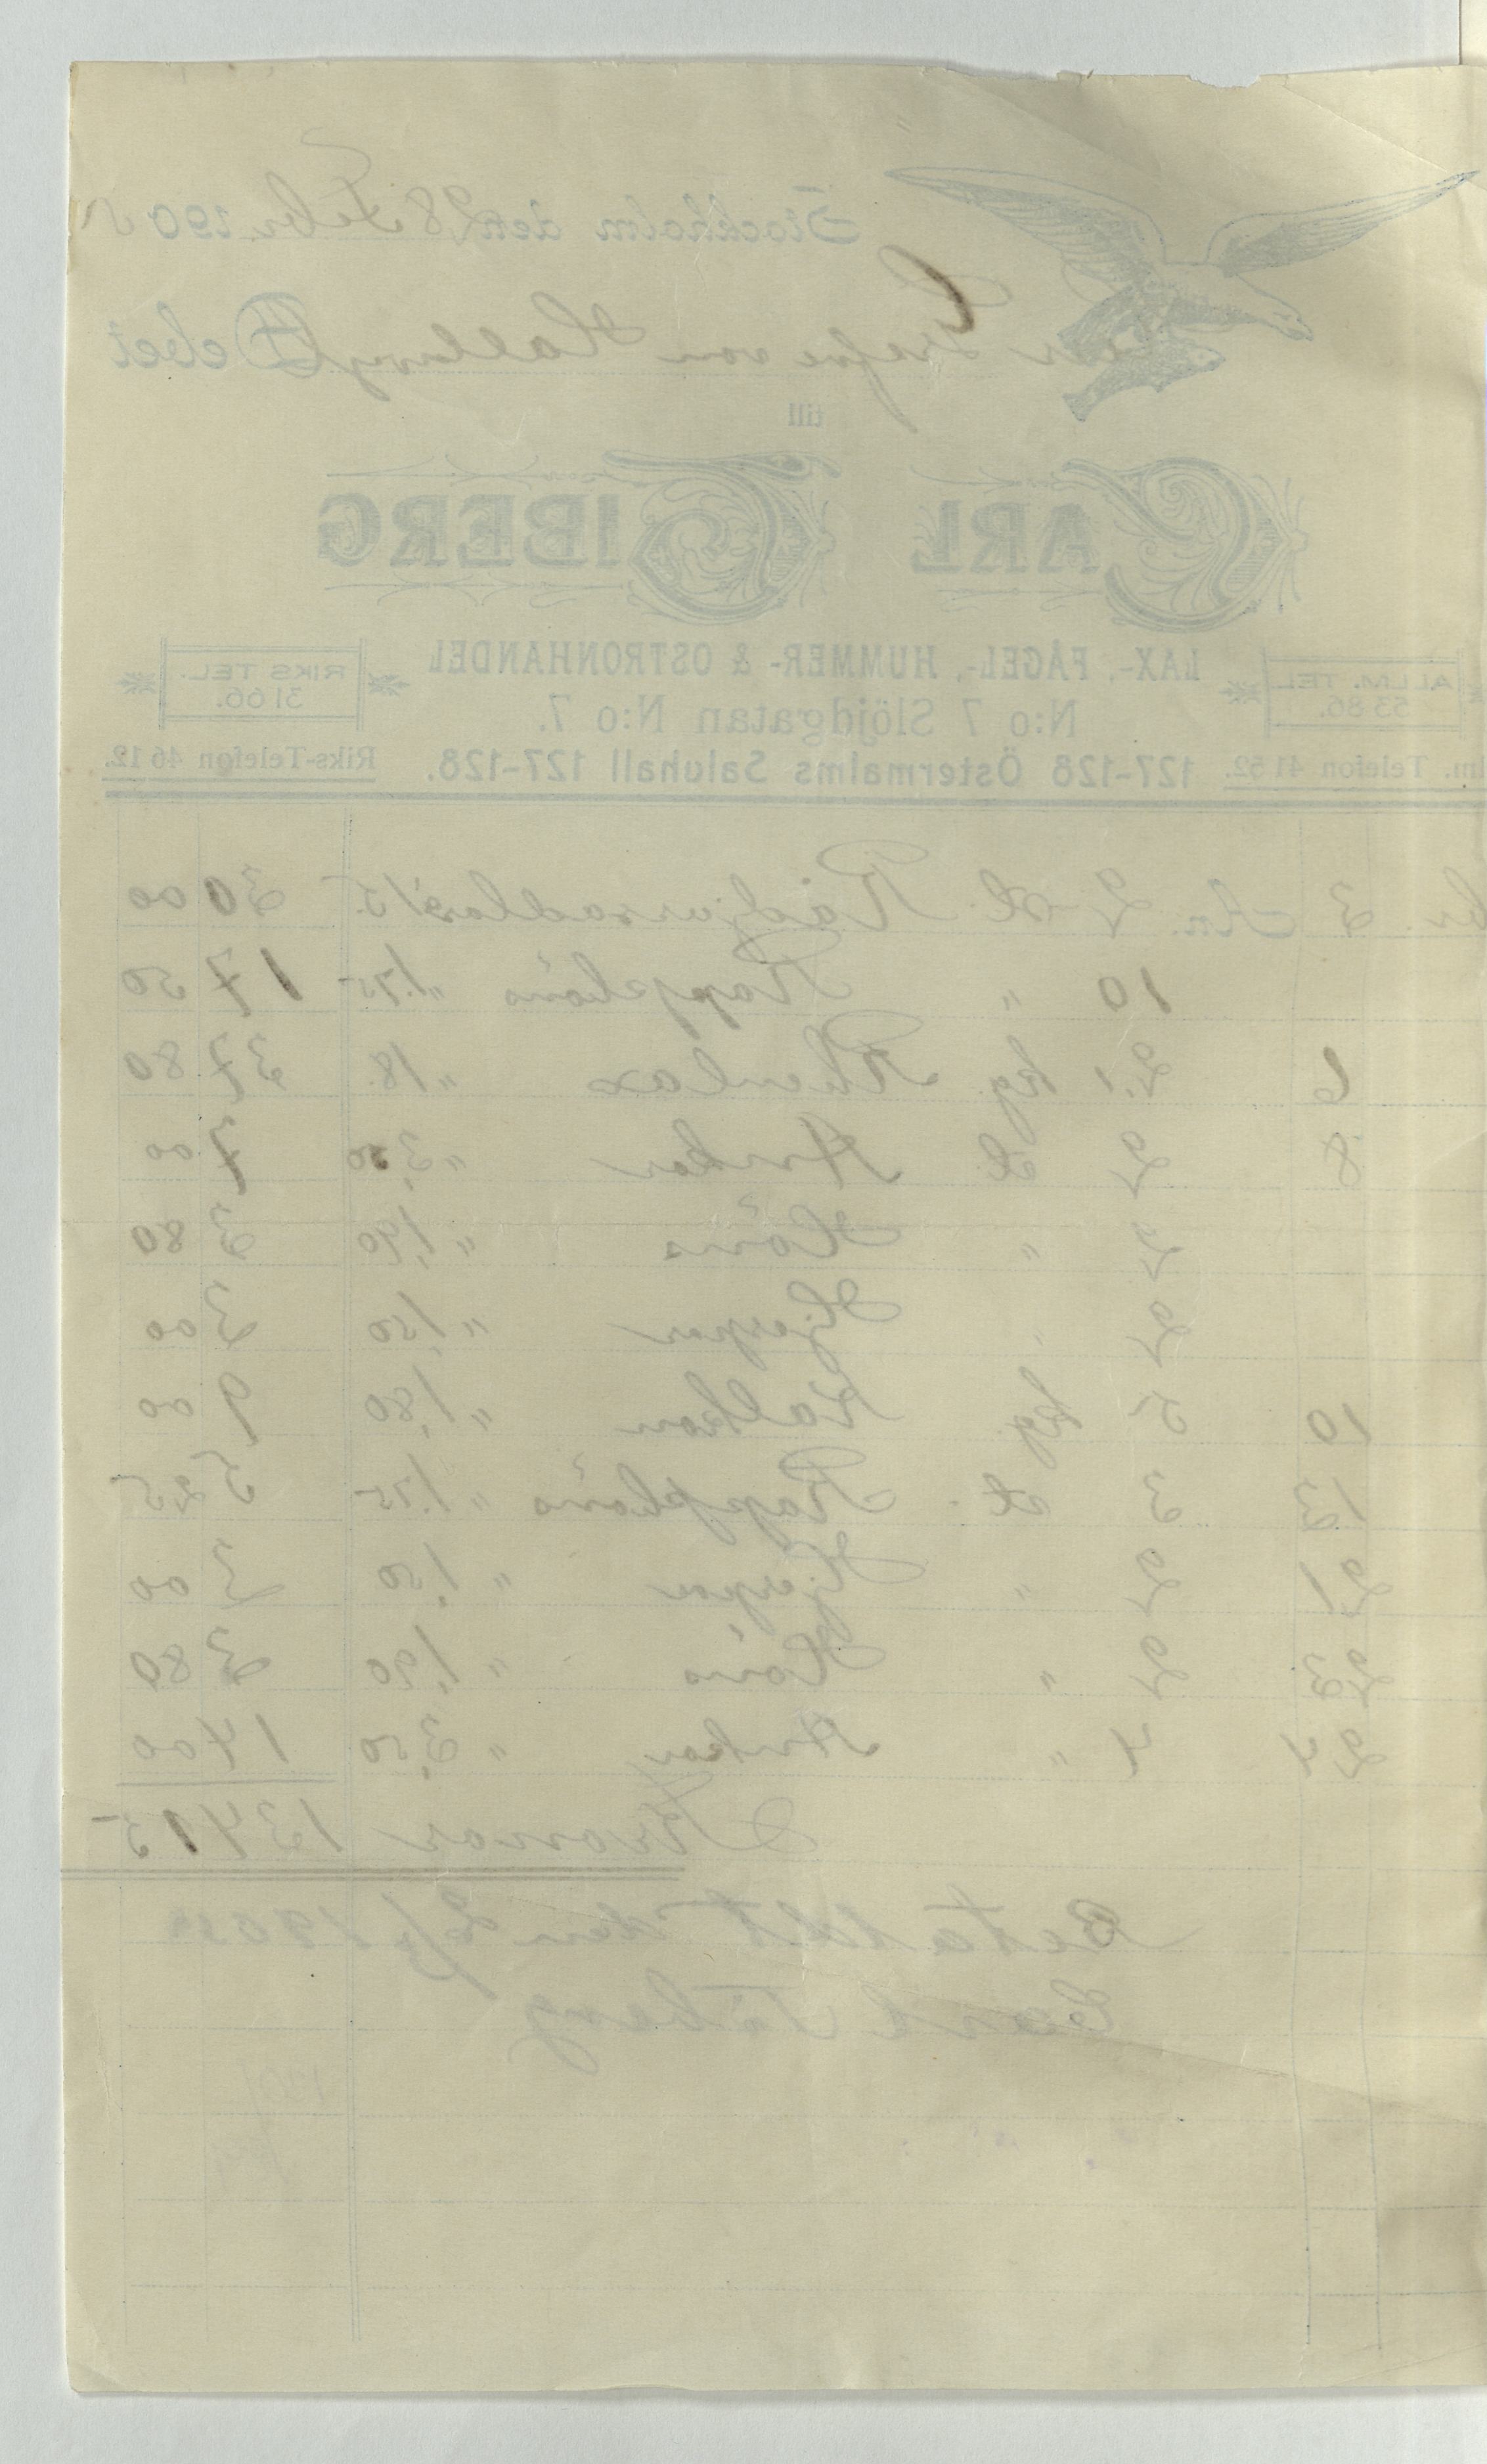 Stockholm den 28 Febr. 1905
Grefve von Hallwyl Debet
till
CARL TIBERG
LAX-, FÅGEL-, HUMMER- & OSTRONHANDEL
ALLM. TEL. 53 86.
N:o 7 Slöjdgatan N:o 7.
RIKS TEL. 31 66.
Telefon 41 52.
127-128 Östermalms Saluhall 127-128.
Riks-Telefon 46 12.
br. 3 An. 2 st. Rådjurssadlar à 15. 30 00
10 " Rapphöns " 1.75 17 50
6 2,1 kg Rhenlax " 18. 37 80
8 2 st Ankor " 3,50 7 00
2 " Höns " 1,90 3 80
2 " Hjerpar " 1,50 3 00
10 5 kg. Kalkon " 1,80 9 00
13 3 st. Rapphöns " 1.75 5 25
21 2 " Hjerpar " 1,50 3 00
23 2 " Höns " 1,90 3 80
24 4 " Ankor " 3,50 14 00
Kronor 134 15
Betaldt den 2/3 1905
Carl Tiberg